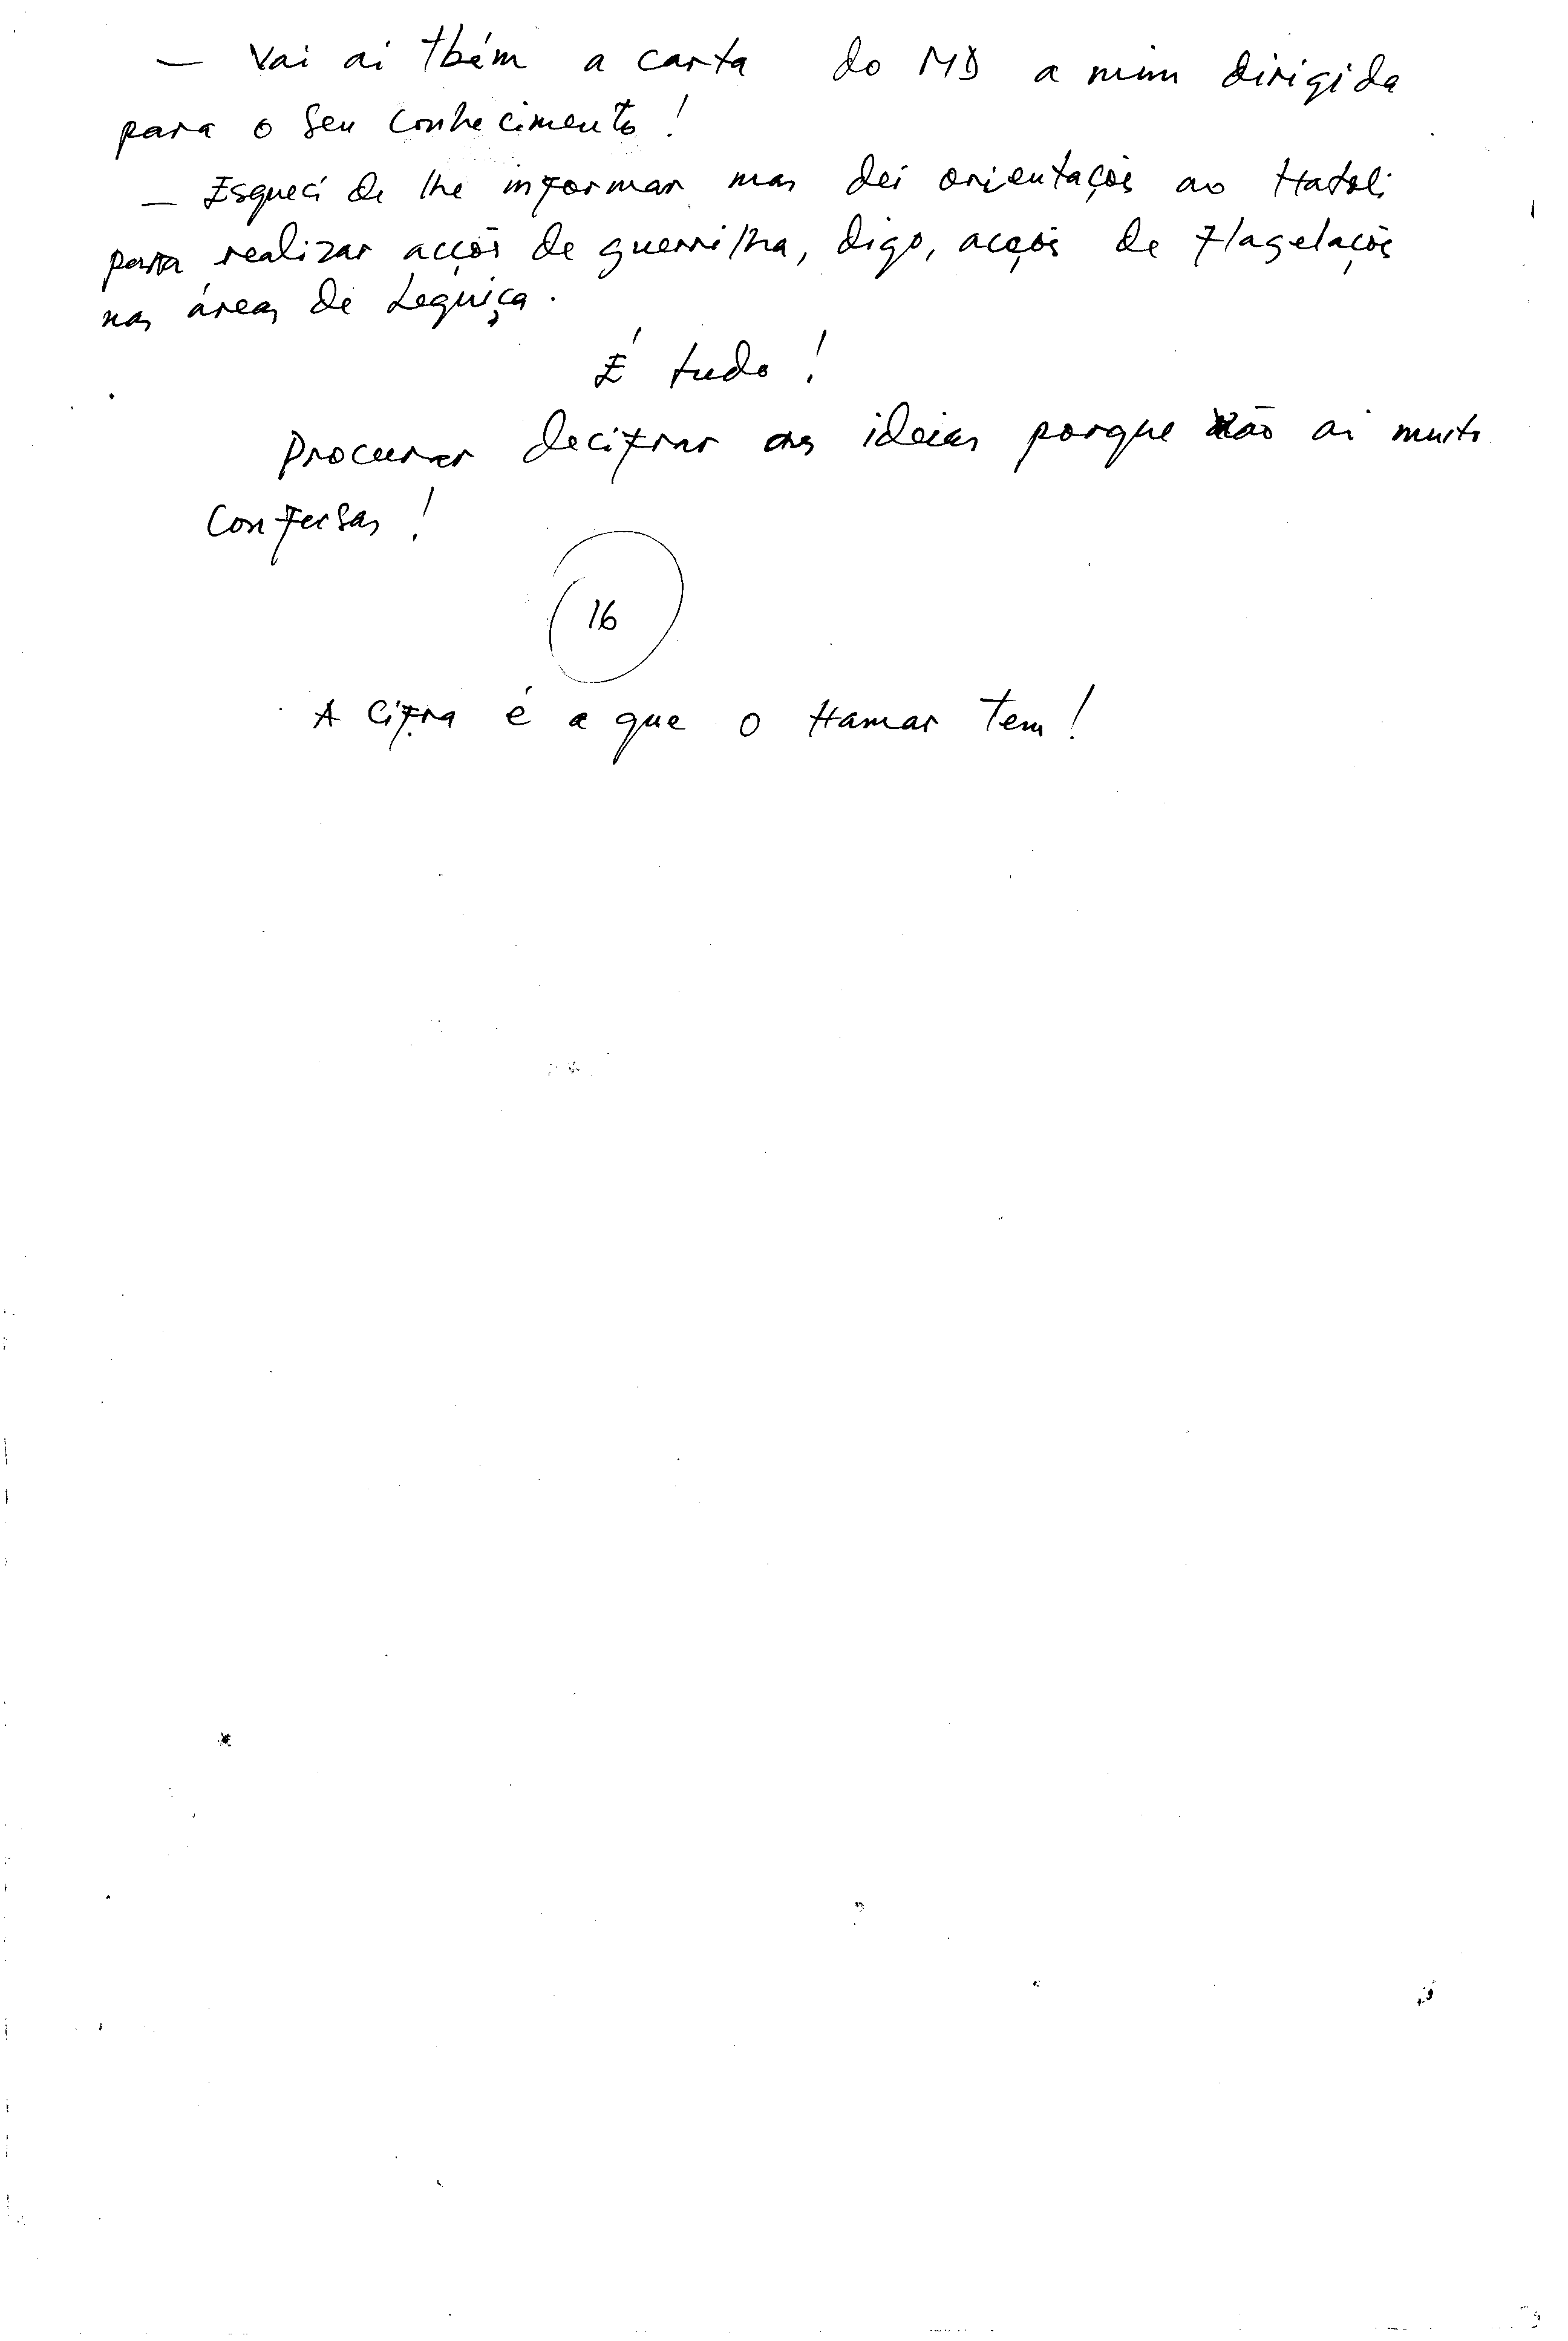 — Vai ai tbém a carta do MD a mim dirigida
para o seu conhecimento!
— Esqueci de lhe informar mas dei orientações ao Hatoli
para realizar acções de guerrilha, digo, acções de flagelações
nas áreas de Lequiça.
É tudo!
Procurar decifrar as ideias porque vão ai muito
confusas!
16
A cifra é a que o Hamar tem!